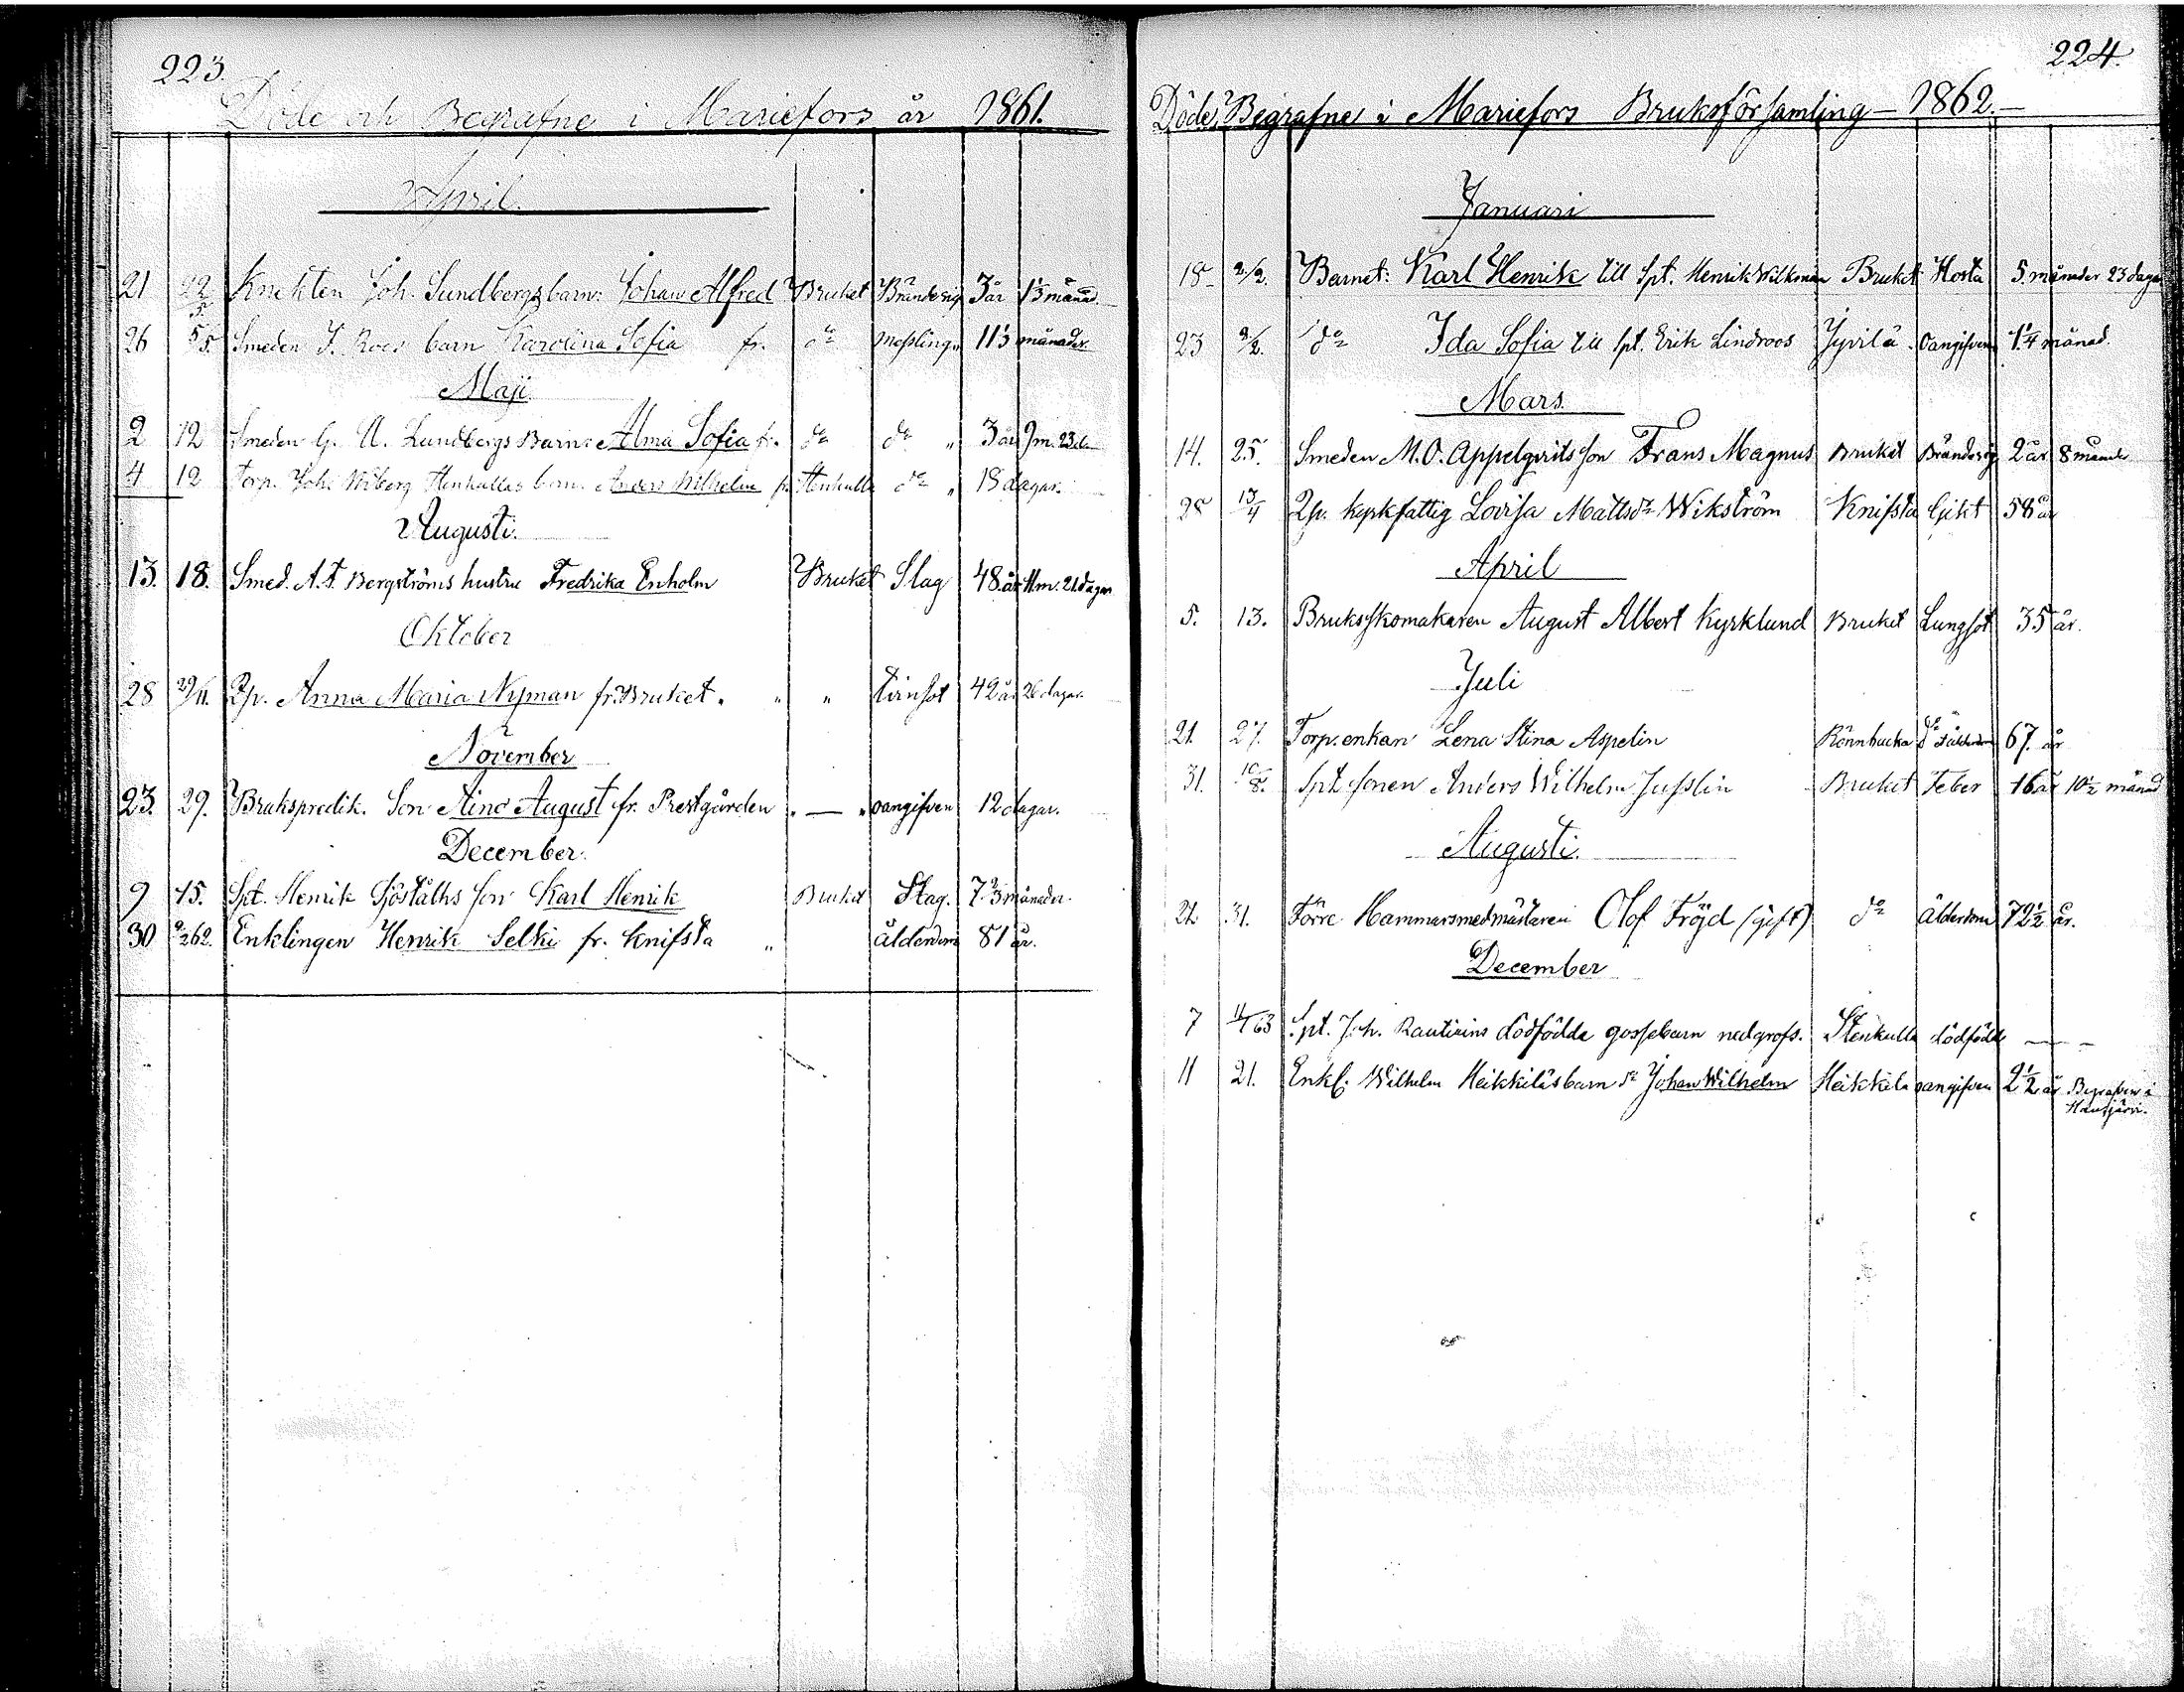 223.
Döde och Begrafne i Mariefors år 1861.
April.
21 22/5 Knekten Joh. Sundbergs barn: Johan Alfred Bruket Brändesig 3 år 1 1/3 månad.
26 5/5 Smeden J. Roos barn Karolina Sofia fr. do Messling " 11 1/3 månader.
Maji
2 12 Smeden G. A. Lundbergs Barn: Alma Sofia fr. do do " 3 år 9 m. 23 d.
4 12 Torp. Joh. Wiberg Stenkullas barn Anders Wilhelm fr. Stenkulla do " 18 dagar.
Augusti.
13. 18. Smed. A. F. Bergströms hustru Fredrika Enholm Bruket Slag 48 år 11 m. 21 dagar
Oktober
28 29/11. Pp. Anna Maria Nyman fr. Bruket. " " tvinsot 42 år 26 dagar.
November
23. 29. Brukspredik. Son Aino August fr. Prestgården " — " oangifven 12 dagar.
December.
9 15. Spt. Henrik Sjöstålhs son Karl Henrik Bruket Slag. 7 2/3 månader.
30 9/2 62. Enklingen Henrik Selki fr. Knifsta " ålderdom 81 år.
224.
Döde, Begrafne i Mariefors Bruksförsamling — 1862. —
Januari
18 2/2. Barnet: Karl Henrik till Spt. Henrik Wilkman Bruket Hosta 5 månader 23 dagar
23 2/2. do Ida Sofia till Spt. Erik Lindroos Jyvilä Oangifven 1 1/4 månad.
Mars.
14. 25. Smeden M. O. Appelqvists son Frans Magnus Bruket Brändesig 2 år 8 månader
28 13/4 Pp. kyrkfattig Lovisa Mattsdr Wikström Knifsta Gikt 58 år
April
5. 13. Bruksskomakaren August Albert Kyrklund Bruket Lungsot 35 år.
Juli
21. 27. Torp. enkan Lena Stina Aspelin Rönnbacka 67. år
31. 10/8. Spt. sonen Anders Wilhelm Jusslin Bruket Feber 16 år 10 1/2 månad
Augusti.
21. 31. Förre Hammarsmedmästaren Olof Fröjd (gift) do Ålderdom 72 1/2 år.
December
7 11/1 63 Spt. Joh. Rautirins dödfödda gossebarn nedgrofs. Stenkulla dödfödd — —
11 21. Enkl. Wilhelm Heikkiläs barn Johan Wilhelm Heikkilä oangifven 2 1/2 år Begrafven i
Hausjärvi.